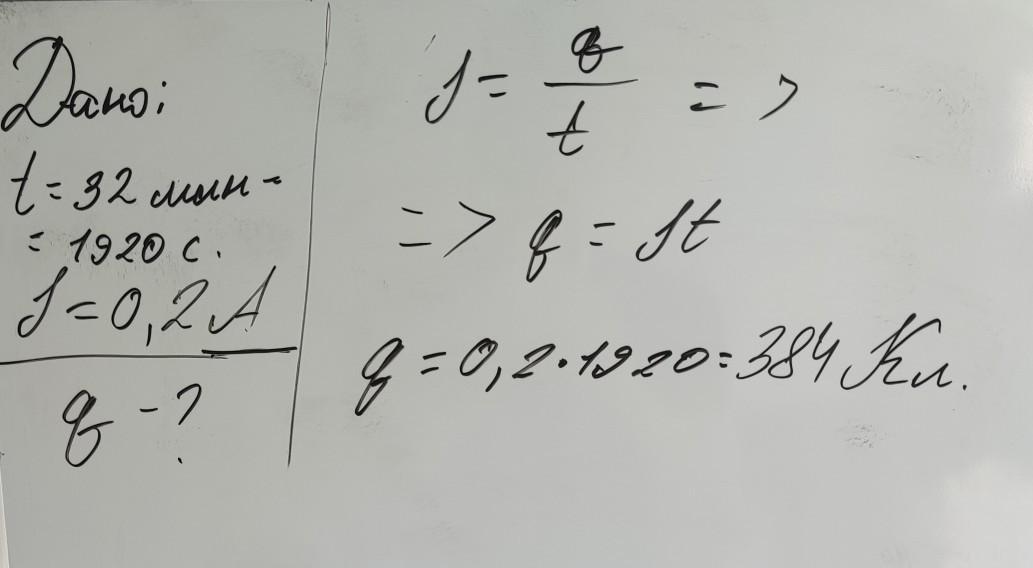 Дано:
t = 32 мин =
= 1920 с.
J = 0,2 А
q - ?
J = q / t =>
=> q = Jt
q = 0,2 · 1920 = 384 Кл.